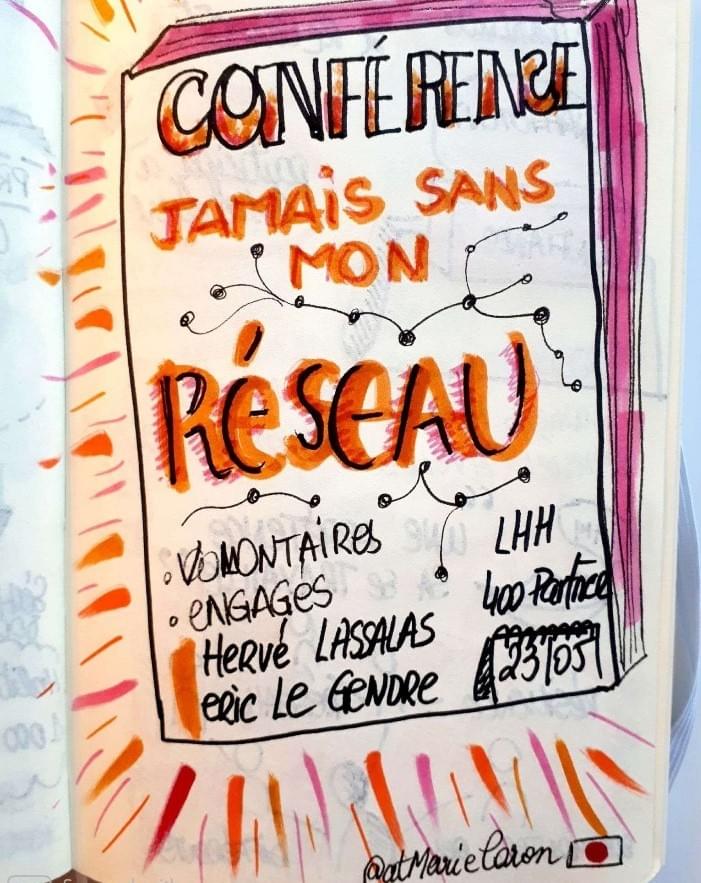 CONFÉRENCE
JAMAIS SANS
MON
RÉSEAU
. VOLONTAIRES
. ENGAGÉS
HERVÉ LASSALAS
ERIC LE GENDRE
LHH
400 Partnce
23/05
@atMarieCaron